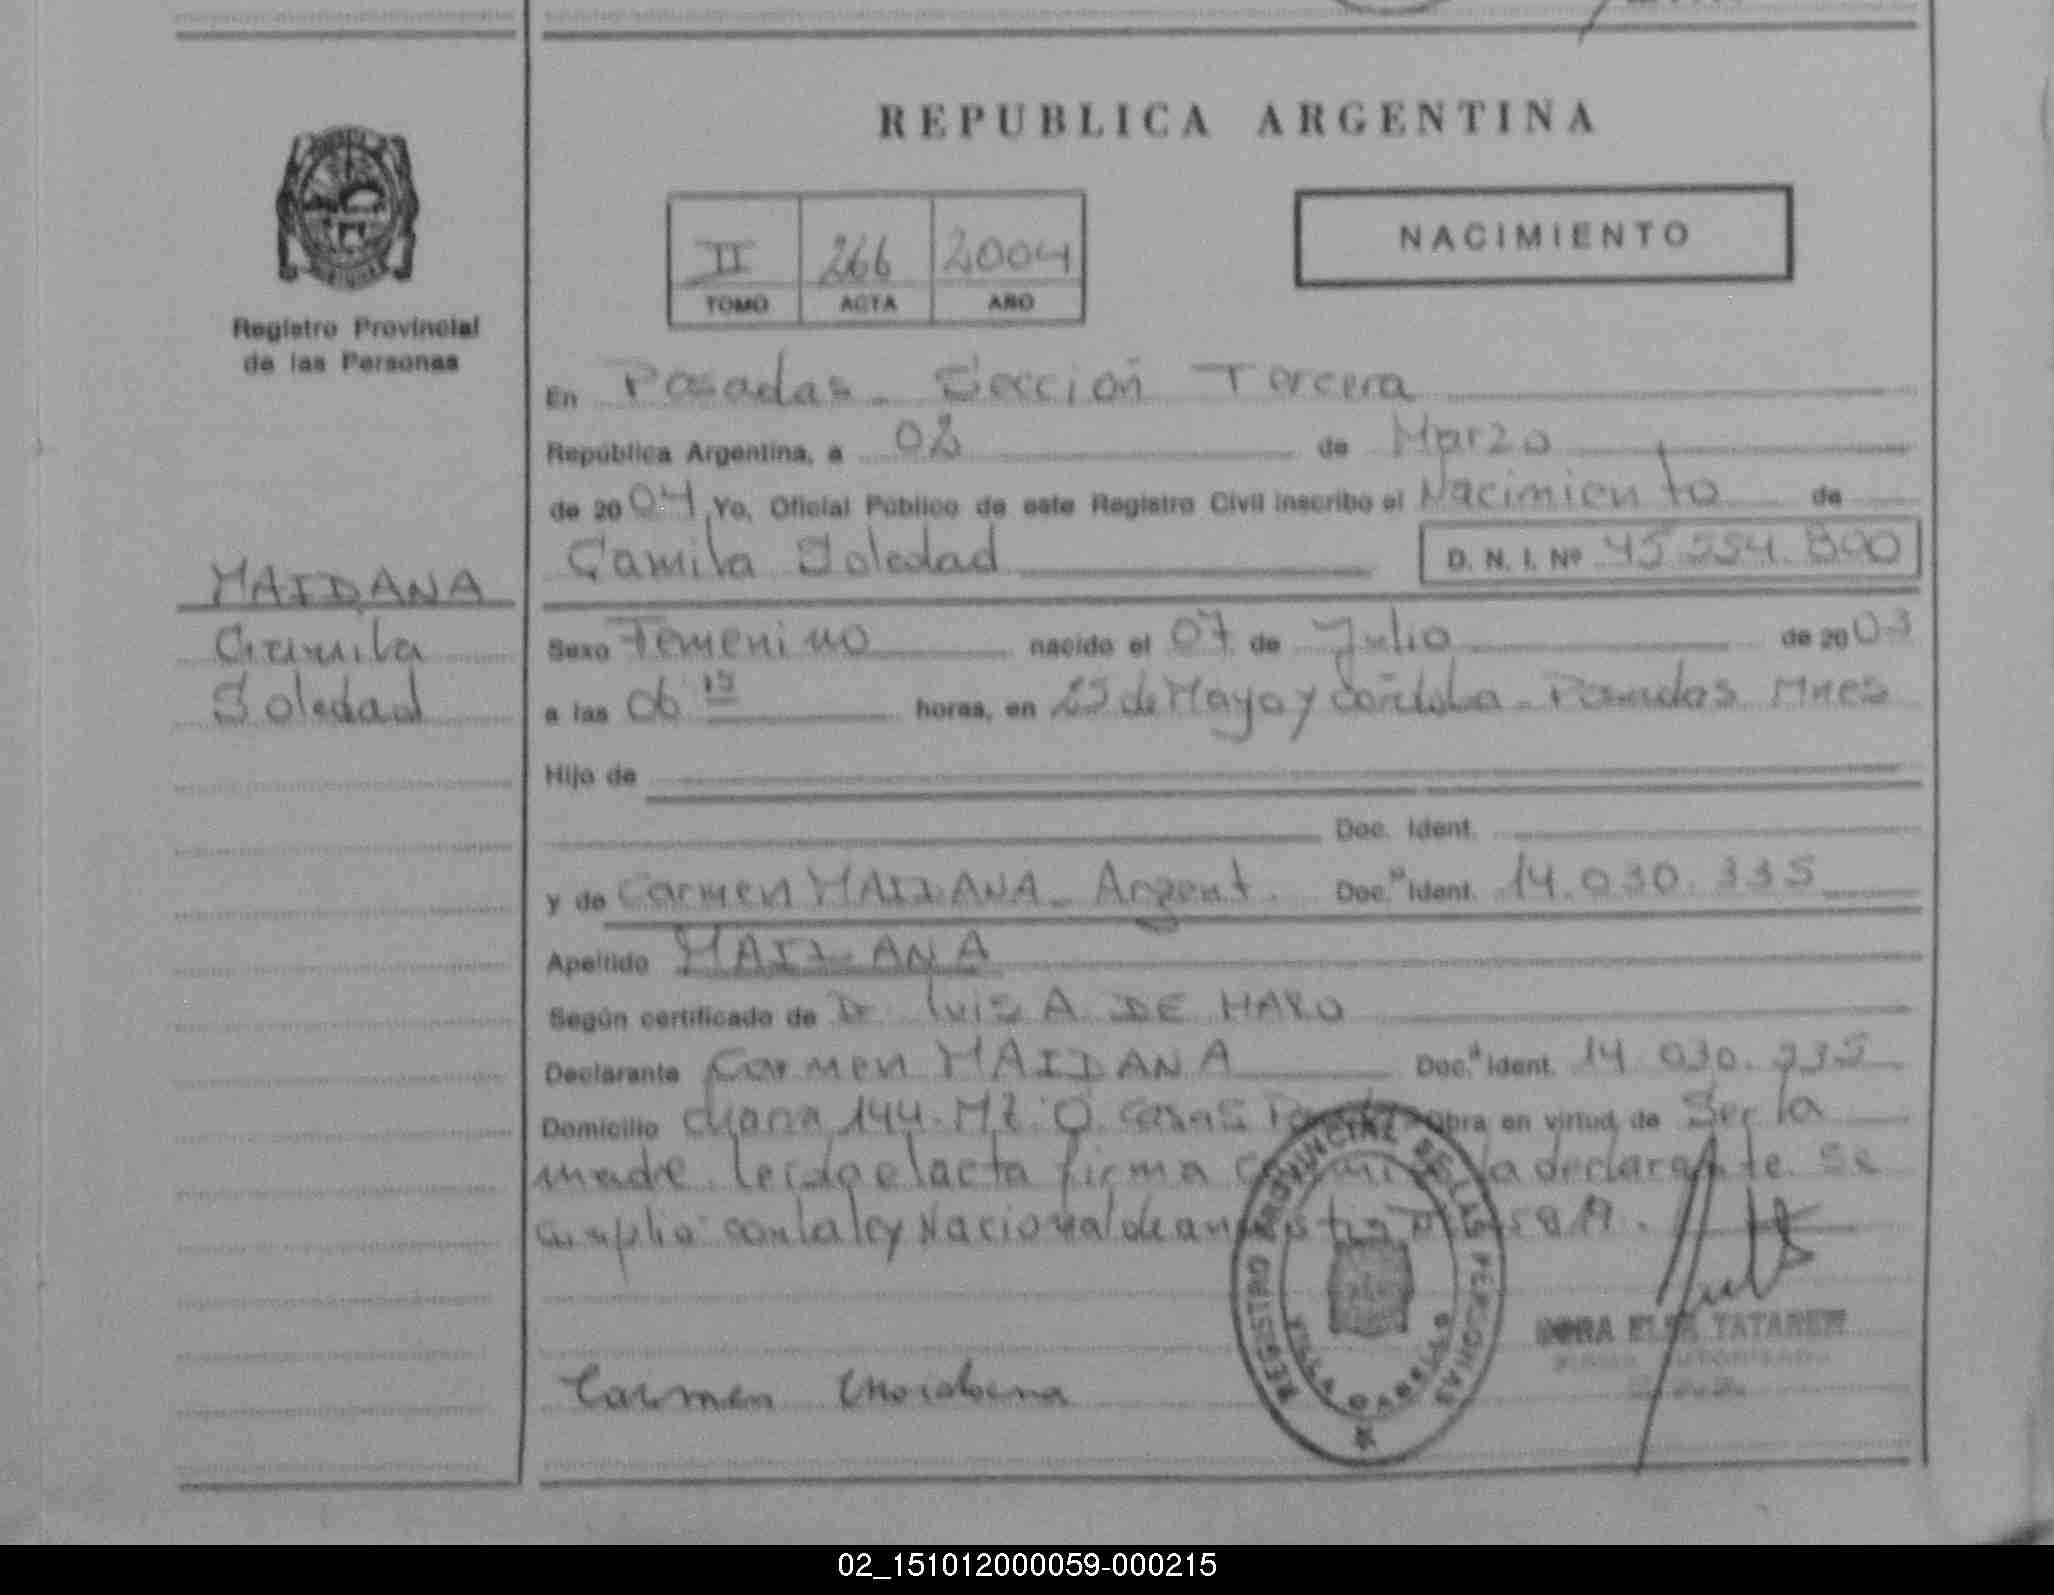 REPUBLICA ARGENTINA
NACIMIENTO
II 266 2004
TOMO ACTA AÑO
Registro Provincial
de las Personas
En Posadas - Sección Tercera
República Argentina, a 02 de Marzo
de 2004 Yo, Oficial Público de este Registro Civil inscribo el Nacimiento de
Camila Soledad D. N. I. Nº 45.554.800
MAIDANA
Camila
Soledad
Sexo Femenino nacido el 07 de Julio de 2003
a las 06 15 horas, en 25 de Mayo y Córdoba - Posadas Mnes
Hijo de
Doc. Ident.
y de Carmen MAIDANA - Argent. Doc. Ident. 14.030.335
Apellido MAIDANA
Según certificado de Dr Luis A DE HARO
Declarante Carmen MAIDANA Doc. Ident. 14.030.335
Domicilio chacra 144. Mz. O casas Obra en virtud de Ser la
madre. Leida el acta firma la declarante. Se
cumplio con la ley Nacional de
REGISTRO PROVINCIAL DE LAS PERSONAS
VILLA CABELLO
Carmen Maidana
DORA ELSA
02_151012000059-000215